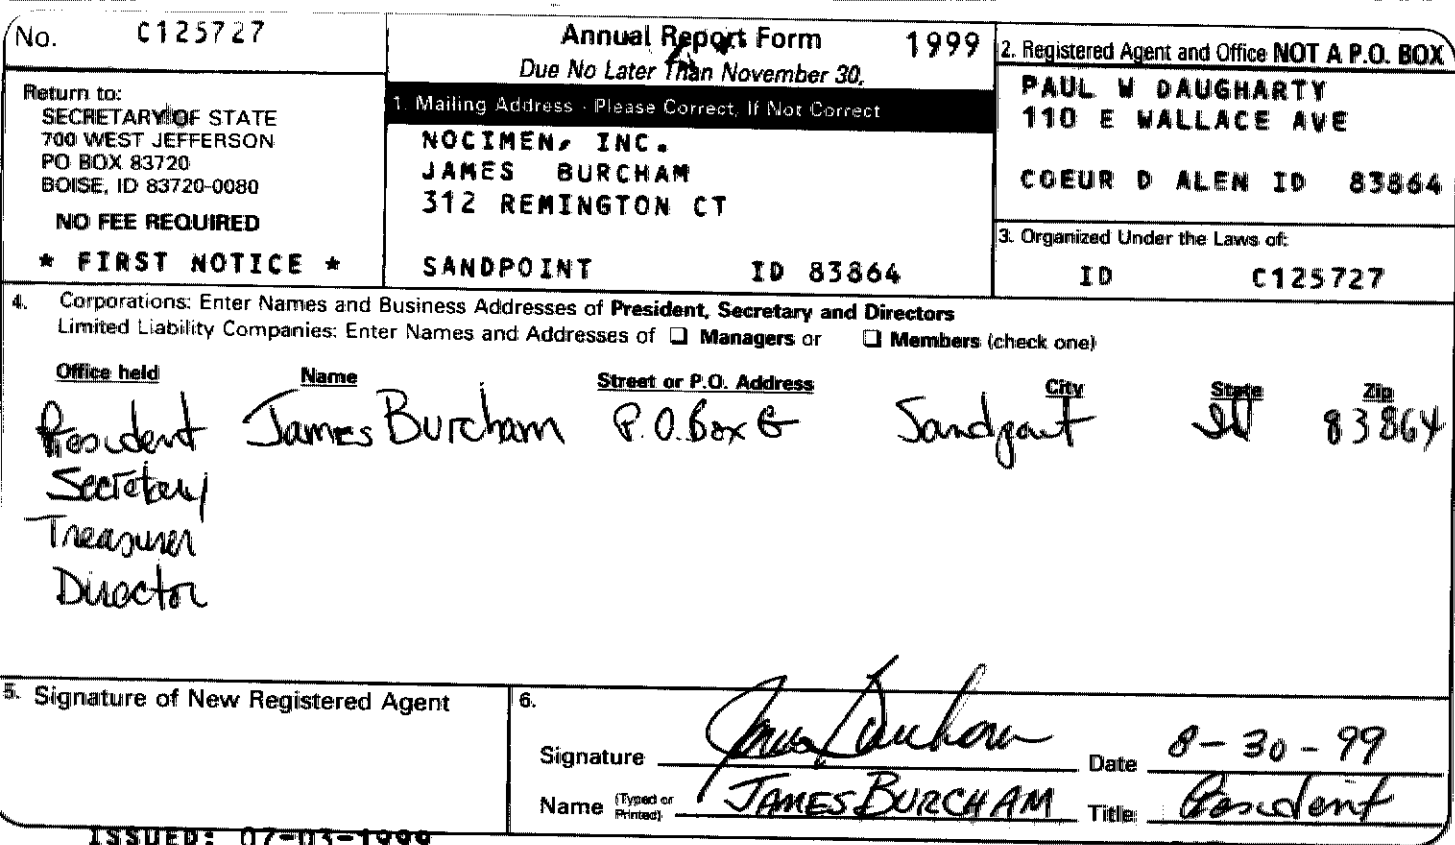 No. C125727
Return to:
SECRETARY OF STATE
700 WEST JEFFERSON
PO BOX 83720
BOISE, ID 83720-0080
NO FEE REQUIRED
* FIRST NOTICE *
Annual Report Form 1999
Due No Later Than November 30,
1. Mailing Address - Please Correct, If Not Correct
NOCIMEN, INC.
JAMES BURCHAM
312 REMINGTON CT
SANDPOINT ID 83864
2. Registered Agent and Office NOT A P.O. BOX
PAUL W DAUGHARTY
110 E WALLACE AVE
COEUR D ALEN ID 83864
3. Organized Under the Laws of:
ID C125727
4. Corporations: Enter Names and Business Addresses of President, Secretary and Directors
Limited Liability Companies: Enter Names and Addresses of ☐ Managers or ☐ Members (check one)
Office held Name Street or P.O. Address City State Zip
President James Burcham P.O. Box G Sandpoint ID 83864
Secretary
Treasurer
Director
5. Signature of New Registered Agent
6.
Signature James Burcham Date 8-30-99
Name (Typed or Printed) JAMES BURCHAM Title President
ISSUED: 07-03-1999